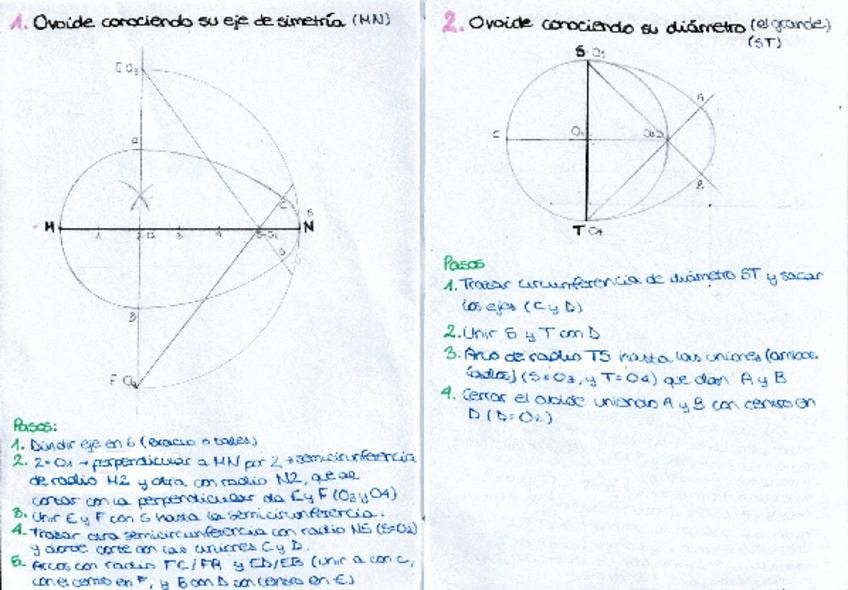 1. Ovoide conociendo su eje de simetría (MN)
E O3
A
M
1
2
3
4
5=O2
C
6
N
D
B
F O4
Pasos:
1. Dividir eje en 6 (exacto o tales)
2. 2=O1 → perpendicular a MN por 2 → semicircunferencia
de radio M2 y otra con radio N2, que al
cortar con la perpendicular da E y F (O3 y O4)
3. Unir E y F con 5 hasta la semicircunferencia.
4. Trazar otra semicircunferencia con radio N5 (5=O2)
y donde corte con las uniones C y D.
5. Arcos con radio FC/FA y ED/EB (unir A con C,
con el centro en F, y B con D con centro en E)
2. Ovoide conociendo su diámetro (el grande)
(ST)
S O3
A
C
O1
T O4
Pasos
1. Trazar circunferencia de diámetro ST y sacar
los ejes (C y D)
2. Unir S y T con D
3. Arco de radio TS hasta las uniones (ambos
lados) (S=O3, y T=O4) que dan A y B
4. Cerrar el ovoide uniendo A y B con centro en
D (D=O2)